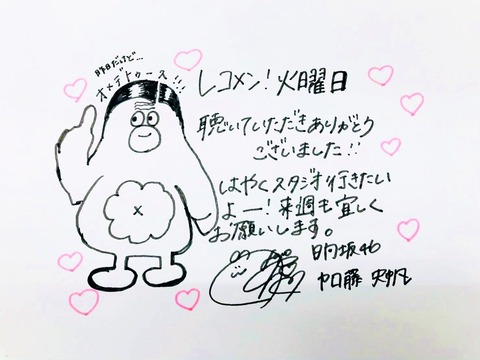 昨日だけど…
オメデトゥース!!
レコメン!火曜日
聴いていただきありがとう
ございました!!
はやくスタジオ行きたい
よー!来週も宜しく
お願いします。
日向坂46
加藤史帆